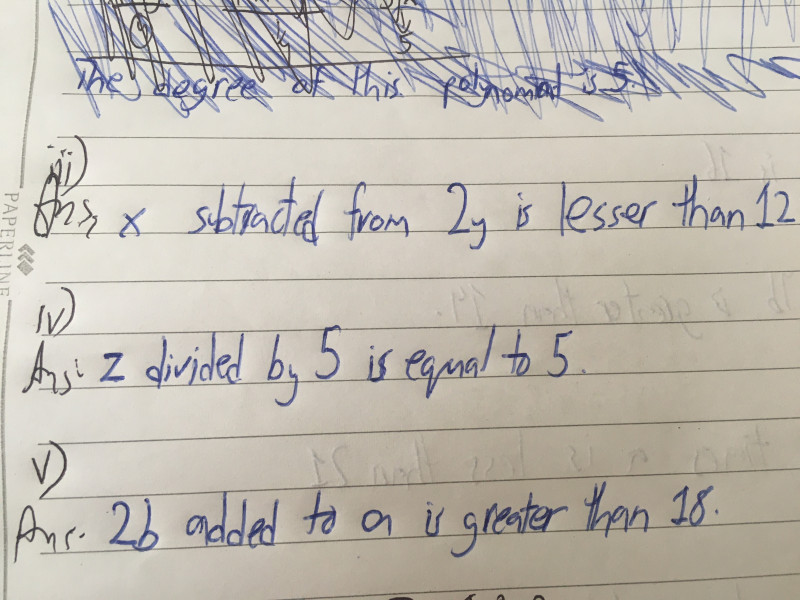 The degree of this polynomial is 5.
iii)
Ans, x subtracted from 2y is lesser than 12
iv)
Ans: z divided by 5 is equal to 5.
v)
Ans. 2b added to a is greater than 18.
PAPERLINE